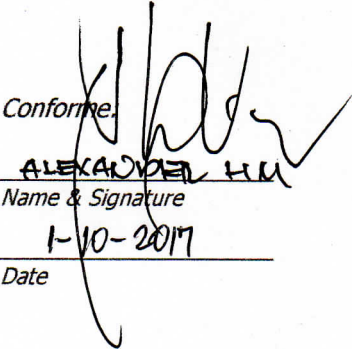 Conforme:
ALEXANDER HM
Name & Signature
1-10-2017
Date